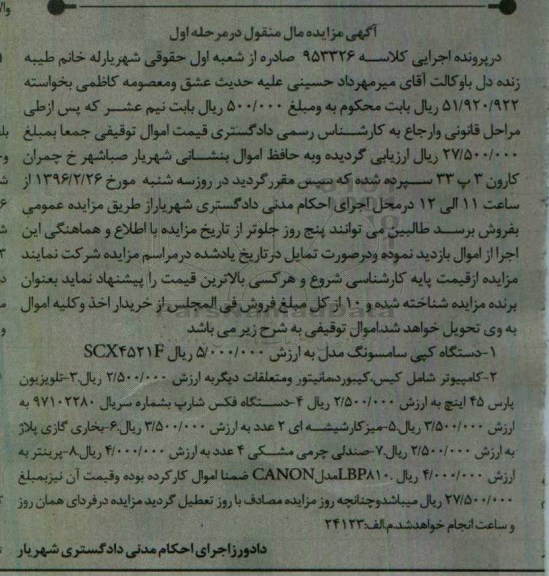 آگهی مزایده مال منقول در مرحله اول
در پرونده اجرایی کلاسه ۹۵۳۳۲۶ صادره از شعبه اول حقوقی شهریار له خانم طیبه
زنده دل با وکالت آقای میر مهرداد حسینی علیه حدیث عشق ومعصومه کاظمی بخواسته
۵۱/۹۲۰/۹۲۲ ریال بابت محکوم به ومبلغ ۵۰۰/۰۰۰ ریال بابت نیم عشر که پس از طی
مراحل قانونی وارجاع به کارشناس رسمی دادگستری قیمت اموال توقیفی جمعا بمبلغ
۲۷/۵۰۰/۰۰۰ ریال ارزیابی گردیده وبه حافظ اموال بنشانی شهریار صباشهر خ چمران
کارون ۳ پ ۳۳ سپرده شده که سپس مقرر گردید در روز سه شنبه مورخ ۱۳۹۶/۲/۲۶ از
ساعت ۱۱ الی ۱۲ در محل اجرای احکام مدنی دادگستری شهریار از طریق مزایده عمومی
بفروش برسد طالبین می توانند پنج روز جلوتر از تاریخ مزایده با اطلاع و هماهنگی این
اجرا از اموال بازدید نموده ودرصورت تمایل در تاریخ یادشده در مراسم مزایده شرکت نمایند
مزایده از قیمت پایه کارشناسی شروع و هرکسی بالاترین قیمت را پیشنهاد نماید بعنوان
برنده مزایده شناخته شده و ۱۰ از کل مبلغ فروش فی المجلس از خریدار اخذ وکلیه اموال
به وی تحویل خواهد شد.اموال توقیفی به شرح زیر می باشد
۱-دستگاه کپی سامسونگ مدل به ارزش ۵/۰۰۰/۰۰۰ ریال SCX۴۵۲۱F
۲-کامپیوتر شامل کیس،کیبورد،مانیتور ومتعلقات دیگر به ارزش ۲/۵۰۰/۰۰۰ ریال.۳-تلویزیون
پارس ۴۵ اینچ به ارزش ۲/۵۰۰/۰۰۰ ریال ۴-دستگاه فکس شارپ بشماره سریال ۹۷۱۰۲۲۸۰ به
ارزش ۳/۵۰۰/۰۰۰ ریال.۵-میز کار شیشه ای ۲ عدد به ارزش ۳/۵۰۰/۰۰۰ ریال.۶-بخاری گازی پلاژ
به ارزش ۲/۵۰۰/۰۰۰ ریال.۷-صندلی چرمی مشکی ۴ عدد به ارزش ۴/۰۰۰/۰۰۰ ریال.۸-پرینتر به
ارزش ۴/۰۰۰/۰۰۰ ریال .LBP۸۱۰مدلCANON ضمنا اموال کارکرده بوده وقیمت آن نیز بمبلغ
۲۷/۵۰۰/۰۰۰ ریال میباشد وچنانچه روز مزایده مصادف با روز تعطیل گردید مزایده در فردای همان روز
و ساعت انجام خواهد شد.م.الف:۲۴۱۲۳
دادورز اجرای احکام مدنی دادگستری شهریار